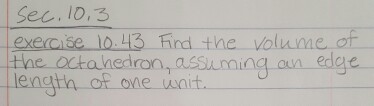 Sec. 10.3
exercise 10.43 Find the volume of
the octahedron, assuming an edge
length of one unit.